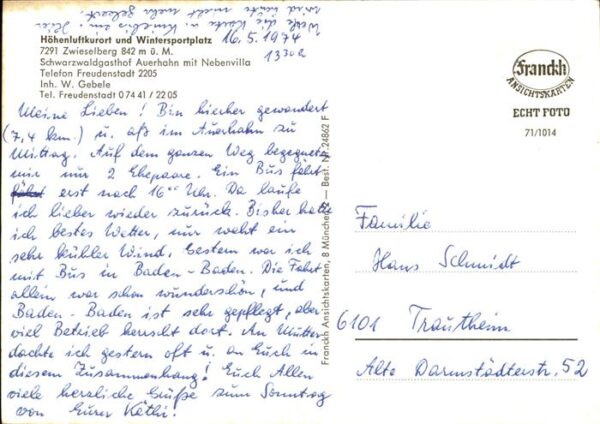 Werfe die Karte in Kniebis ein. Hier
wird heute nicht mehr geleert!
Höhenluftkurort und Wintersportplatz
7291 Zwieselberg 842 m ü. M.
Schwarzwaldgasthof Auerhahn mit Nebenvilla
Telefon Freudenstadt 2205
Inh. W. Gebele
Tel. Freudenstadt 0 74 41 / 22 05
16.5.1974
13³⁰ h
Meine Lieben! Bin hierher gewandert
(7,4 km.) u. aß im Auerhahn zu
Mittag. Auf dem ganzen Weg begegneten
mir nur 2 Ehepaare. Ein Bus fährt
erst nach 16⁰⁰ Uhr. Da laufe
ich lieber wieder zurück. Bisher hatte
ich bestes Wetter, nur weht ein
sehr kühler Wind. Gestern war ich
mit Bus in Baden-Baden. Die Fahrt
allein war schon wunderschön, und
Baden-Baden ist sehr gepflegt, aber
viel Betrieb herrscht dort. An Mutter
dachte ich gestern oft u. an Euch in
diesem Zusammenhang! Euch Allen
viele herzliche Grüße zum Sonntag
von Eurer Käthi.
Franckh Ansichtskarten, 8 München 2 — Best. Nr. 24862 F
Franckh
ANSICHTSKARTEN
ECHT FOTO
71/1014
Familie
Hans Schmidt
6101 Trautheim
Alte Darmstädterstr. 52